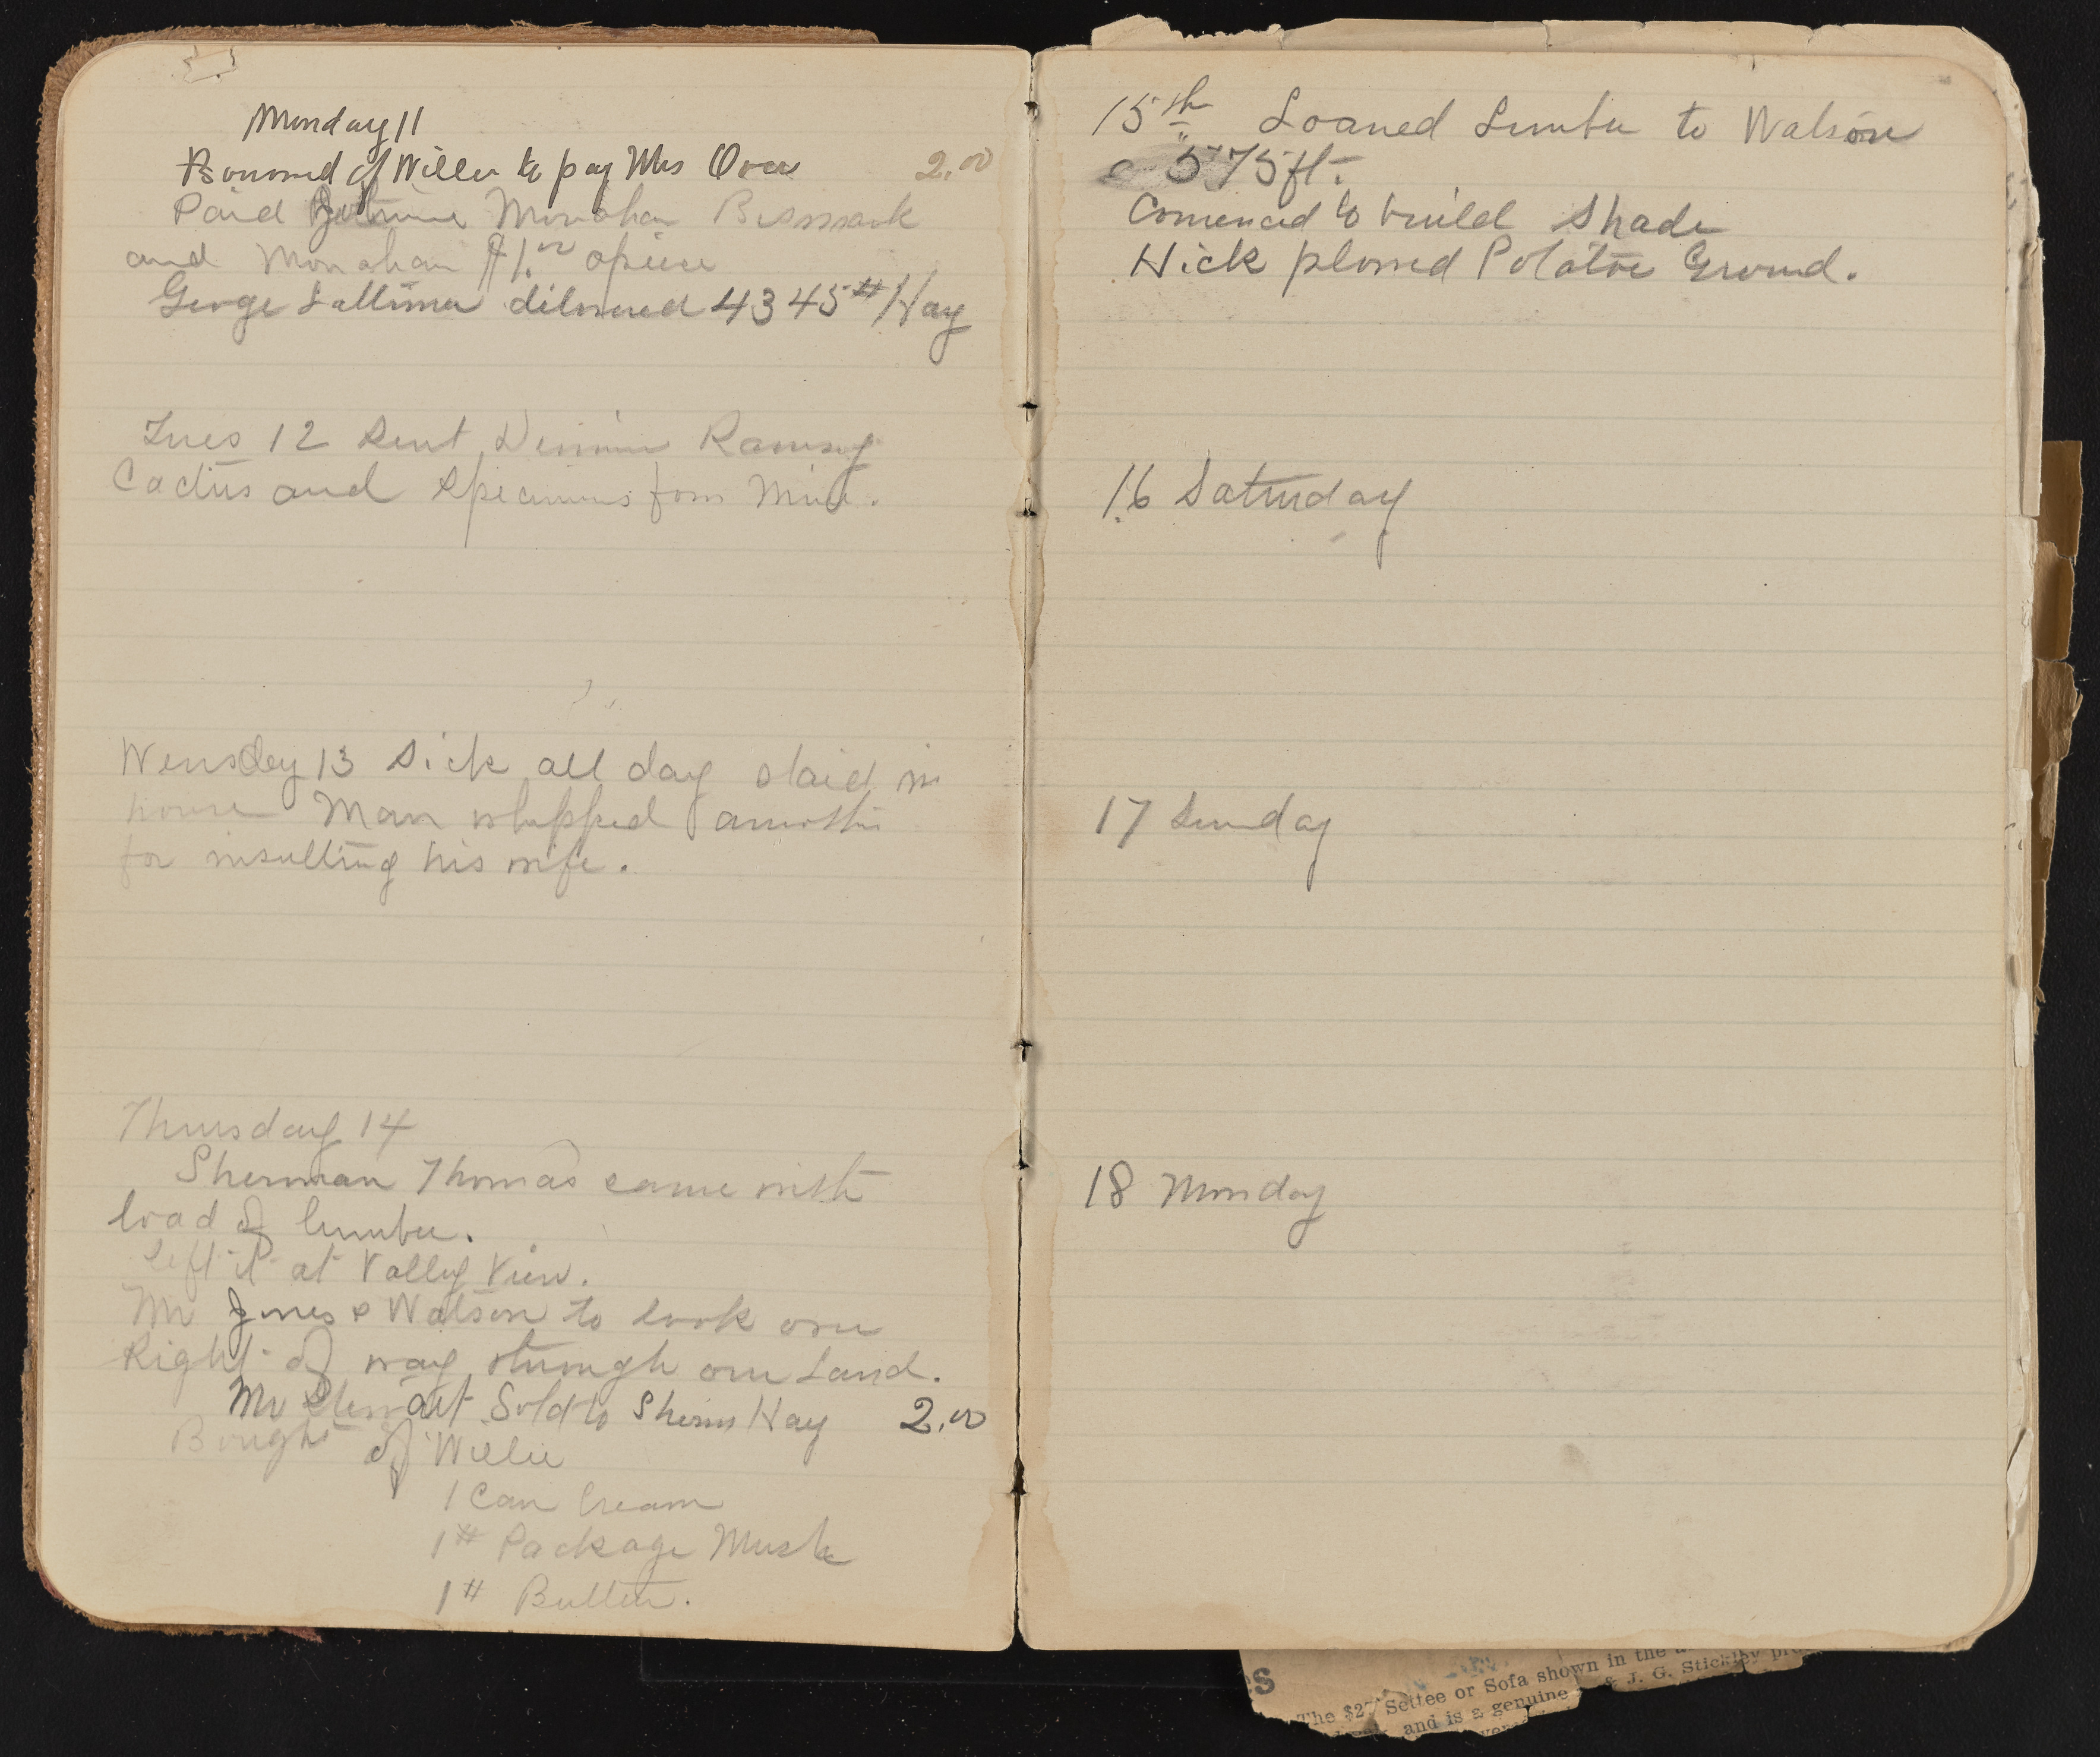 Monday 11
Borrowed of Willie to pay Mrs 2.00
Paid Monahan Bismark
and Monahan $1.00 apiece
George Lattimer dilivered 4345# Hay
Tues 12 Sent Ramsey
Cactus and Specimens from Mine.
Wensdey 13 Sick all day staid in
house Man whipped another
for insulting his wife.
Thursday 14
Sherman Thomas came with
load of lumber.
left it at Valley View.
Mr Jones & Watson to look over
Right of way through our Land.
Mr Stewart Sold to Sherm Hay 2.00
Bought of Willie
1 Can Cream
1# Package Mush
1# Butter.
15th Loaned Lumber to Watson
575 ft.
Comenced to build Shade
Hick plowed Potatoe Ground.
16 Saturday
17 Sunday
18 Monday
The $27 Settee or Sofa shown in the
and is a genuine & J. G. Stickley